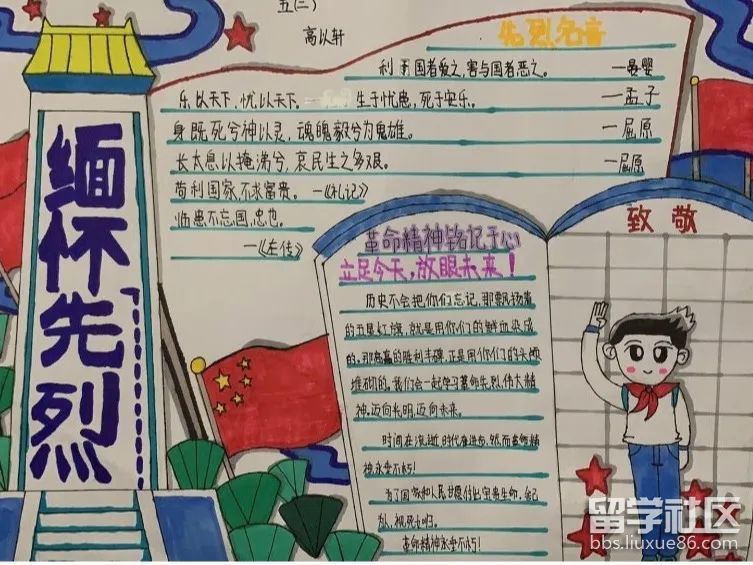 五(二)
高以轩
先烈名言
利于国者爱之,害与国者恶之。 —晏婴
乐以天下,忧以天下, 生于忧患,死于安乐。 —孟子
身既死兮神以灵,魂魄毅兮为鬼雄。 —屈原
长太息以掩涕兮,哀民生之多艰。 —屈原
苟利国家,不求富贵。 —《礼记》
临患不忘国,忠也。
—《左传》
缅怀先烈
革命精神铭记于心
立足今天,放眼未来!
历史不会把你们忘记,那飘扬着
的五星红旗,就是用你们的鲜血染成
的,那高高的胜利丰碑,正是用你们的头颅
堆砌的,我们会一起学习革命先烈,伟大精
神,迈向光明,迈向未来。
时间在流逝,时代在进步,然而革命精
神永垂不朽!
为了国家和人民甘愿付出宝贵生命,舍己
为人,视死如归。
革命精神永垂不朽!
致敬
留学社区
bbs.liuxue86.com